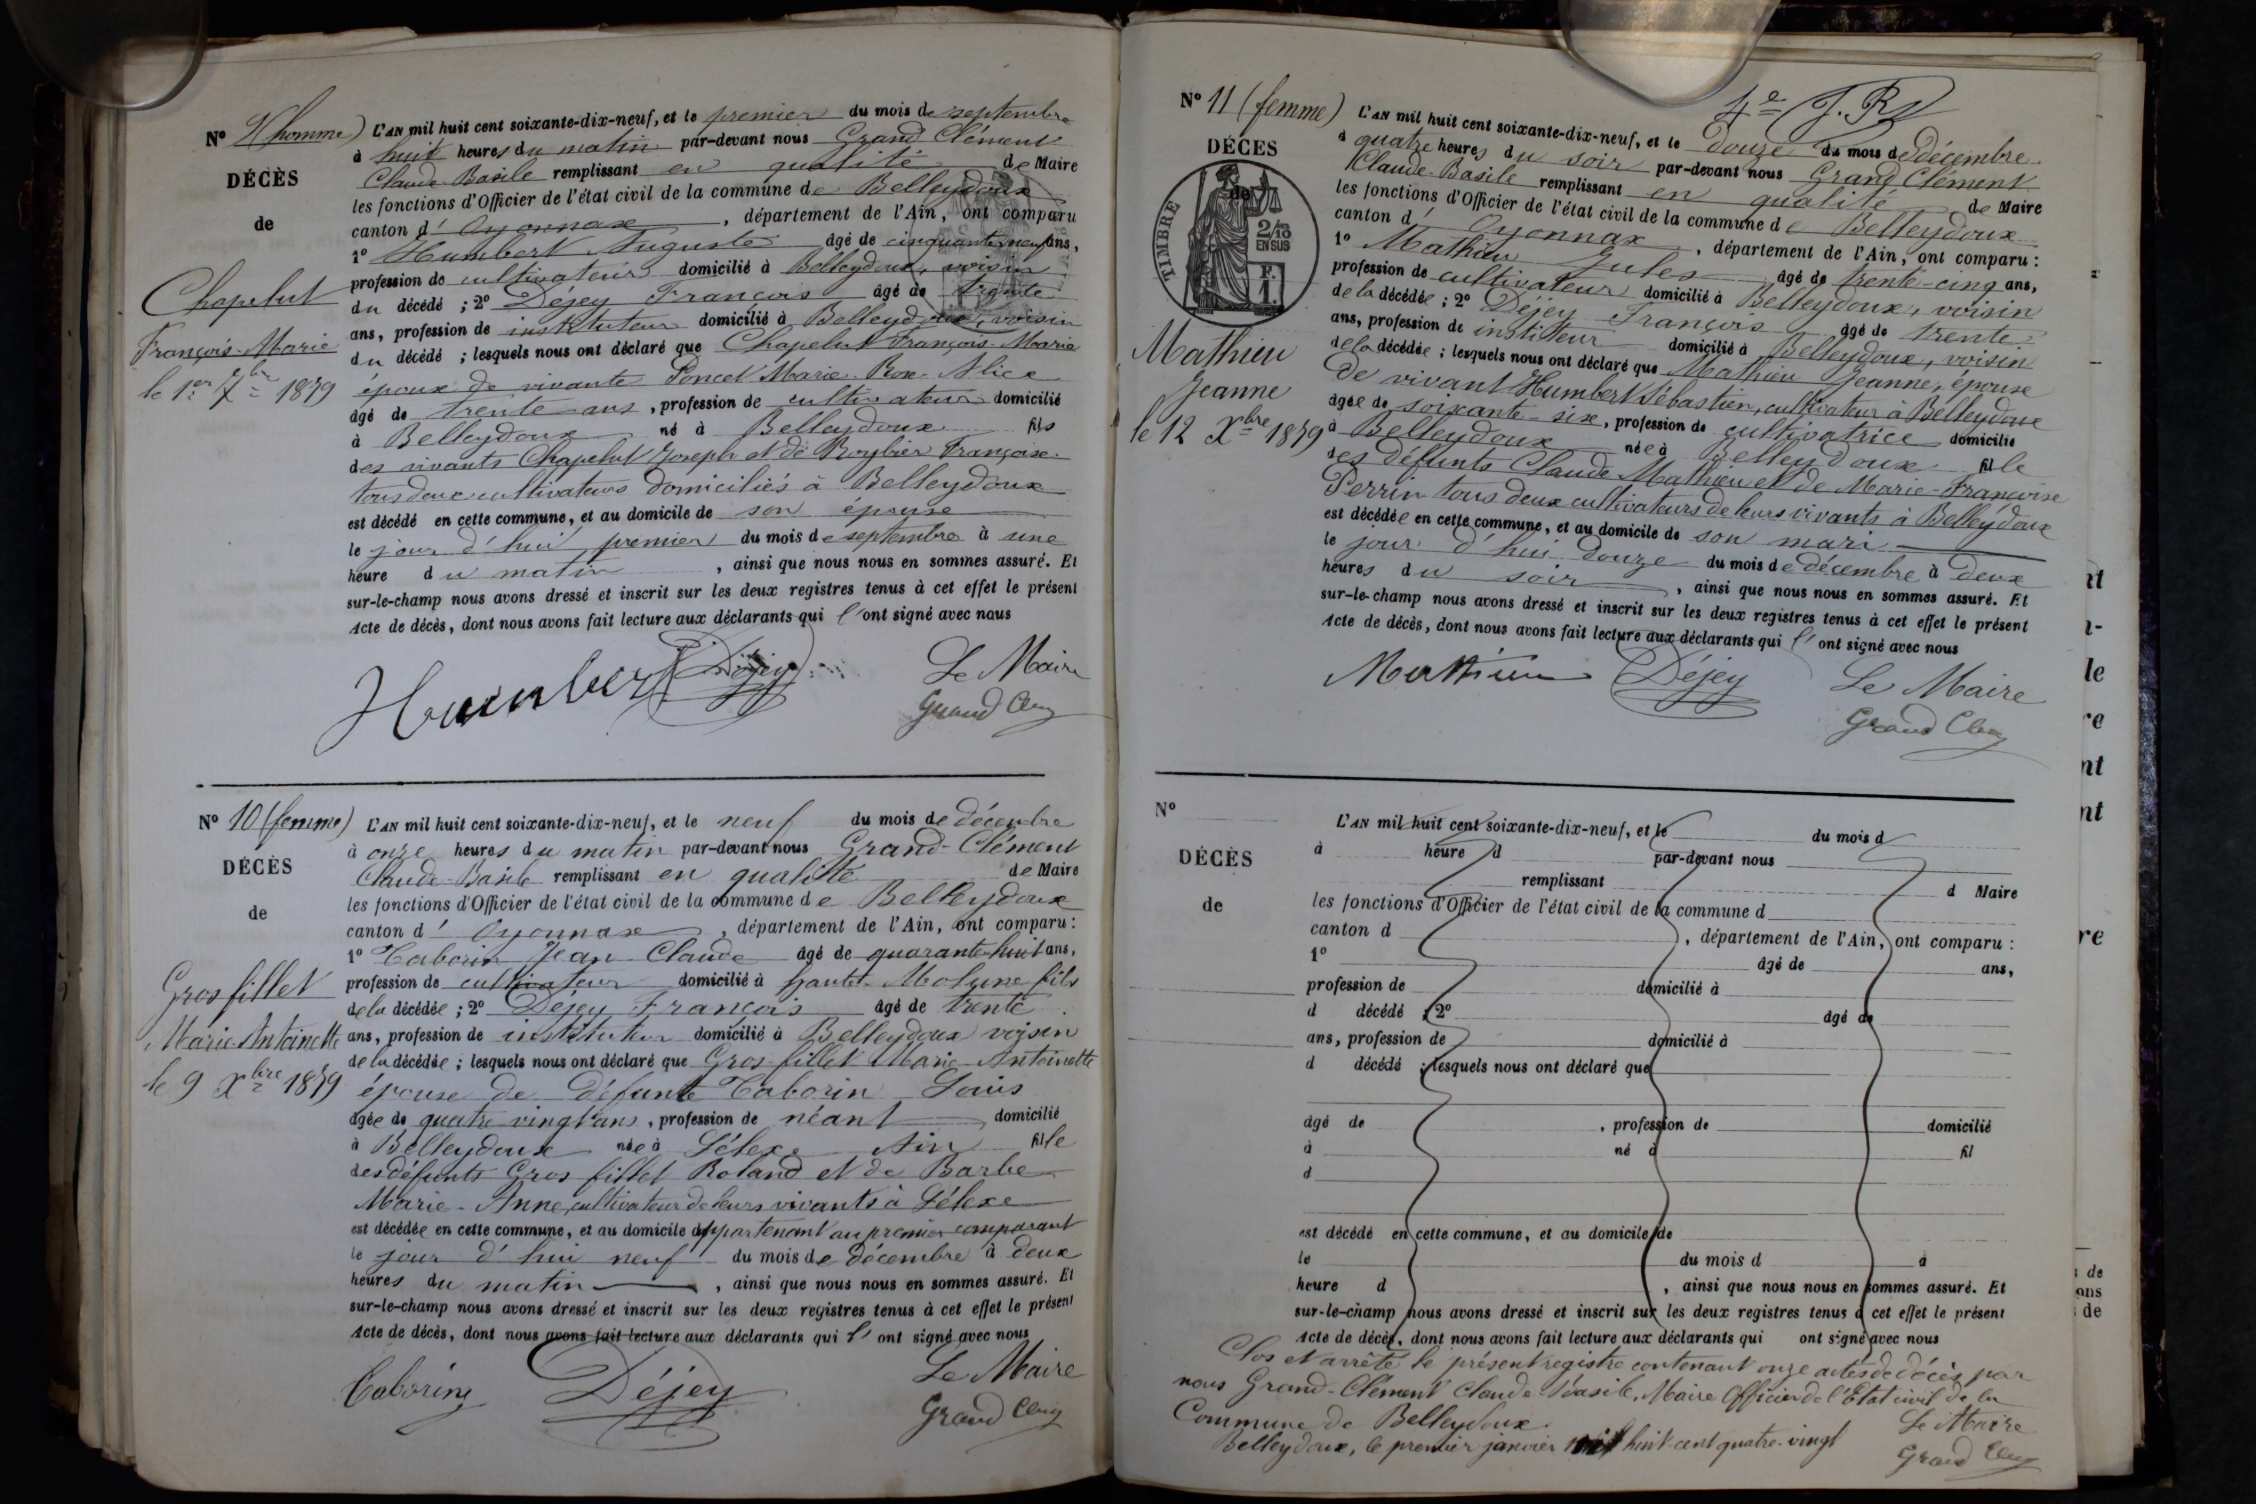 N° 9 (homme)
DÉCÈS
de
Chapelut
François-Marie
le 1er 7bre 1879
L'AN mil huit cent soixante-dix-neuf, et le premier du mois de septembre
à huit heures du matin par-devant nous Grand Clément
Claude-Basile remplissant en qualité de Maire
les fonctions d'Officier de l'état civil de la commune de Belleydoux
canton d'Oyonnax, département de l'Ain, ont comparu
1° Humbert Auguste âgé de cinquante-neuf ans,
profession de cultivateur domicilié à Belleydoux, voisin
du décédé ; 2° Déjey François âgé de trente
ans, profession de instituteur domicilié à Belleydoux, voisin
du décédé ; lesquels nous ont déclaré que Chapelut François-Marie
époux de vivante Poncet Marie-Rose-Alice
âgé de trente ans, profession de cultivateur domicilié
à Belleydoux né à Belleydoux fils
des vivants Chapelut Joseph et de Roybier Françoise
tous deux cultivateurs domiciliés à Belleydoux
est décédé en cette commune, et au domicile de son épouse
le jour d'hui premier du mois de septembre à une
heure du matin, ainsi que nous nous en sommes assuré. Et
sur-le-champ nous avons dressé et inscrit sur les deux registres tenus à cet effet le présent
Acte de décès, dont nous avons fait lecture aux déclarants qui l'ont signé avec nous
Humbert Déjey Le Maire
Grand Clem
N° 10 (femme)
DÉCÈS
de
Gros fillet
Marie Antoinette
le 9 Xbre 1879
L'AN mil huit cent soixante-dix-neuf, et le neuf du mois de décembre
à onze heures du matin par-devant nous Grand-Clément
Claude-Basile remplissant en qualité de Maire
les fonctions d'Officier de l'état civil de la commune de Belleydoux
canton d'Oyonnax, département de l'Ain, ont comparu :
1° Taborin Jean Claude âgé de quarante-huit ans,
profession de cultivateur domicilié à haute-Molune fils
de la décédée ; 2° Déjey François âgé de trente
ans, profession de instituteur domicilié à Belleydoux voisin
de la décédée ; lesquels nous ont déclaré que Gros-fillet Marie-Antoinette
épouse de défunt Taborin Louis
âgée de quatre vingt ans, profession de néant domicilié
à Belleydoux née à Lélex Ain fille
des défunts Gros fillet Roland et de Barbe
Marie-Anne, cultivateur de leurs vivants à Lélex
est décédée en cette commune, et au domicile appartenant au premier comparant
le jour d'hui neuf du mois de décembre à deux
heures du matin, ainsi que nous nous en sommes assuré. Et
sur-le-champ nous avons dressé et inscrit sur les deux registres tenus à cet effet le présent
Acte de décès, dont nous avons fait lecture aux déclarants qui l'ont signé avec nous
Taborin Déjey Le Maire
Grand Clem
4e J. R
N° 11 (femme)
DÉCES
de
TIMBRE
2/10
EN SUS
F.
1.
Mathieu
Jeanne
le 12 Xbre 1879
L'AN mil huit cent soixante-dix-neuf, et le douze du mois de décembre
à quatre heures du soir par-devant nous Grand Clément
Claude-Basile remplissant en qualité de Maire
les fonctions d'Officier de l'état civil de la commune de Belleydoux
canton d'Oyonnax, département de l'Ain, ont comparu :
1° Mathieu Jules âgé de trente-cinq ans,
profession de cultivateur domicilié à Belleydoux, voisin
de la décédée ; 2° Déjey François âgé de trente
ans, profession de instituteur domicilié à Belleydoux, voisin
de la décédée ; lesquels nous ont déclaré que Mathieu Jeanne, épouse
de vivant Humbert Sébastien, cultivateur à Belleydoux
âgée de soixante-six, profession de cultivatrice domicilié
à Belleydoux née à Belleydoux fille
des défunts Claude Mathieu et de Marie-Françoise
Perrin tous deux cultivateurs de leurs vivants à Belleydoux
est décédée en cette commune, et au domicile de son mari
le jour d'hui douze du mois de décembre à deux
heures du soir, ainsi que nous nous en sommes assuré. Et
sur-le-champ nous avons dressé et inscrit sur les deux registres tenus à cet effet le présent
Acte de décès, dont nous avons fait lecture aux déclarants qui l'ont signé avec nous
Mathieu Déjey Le Maire
Grand Clem
N°
DÉCÈS
de
L'AN mil huit cent soixante-dix-neuf, et le du mois d
à heure d par-devant nous
remplissant d Maire
les fonctions d'Officier de l'état civil de la commune d
canton d , département de l'Ain, ont comparu :
1° âgé de ans,
profession de domicilié à
d décédé ; 2° âgé de
ans, profession de domicilié à
d décédé ; lesquels nous ont déclaré que
âgé de , profession de domicilié
à né à fil
d
est décédé en cette commune, et au domicile de
le du mois d à
heure d , ainsi que nous nous en sommes assuré. Et
sur-le-champ nous avons dressé et inscrit sur les deux registres tenus à cet effet le présent
Acte de décès, dont nous avons fait lecture aux déclarants qui ont signé avec nous
Clos et arrêté le présent registre contenant onze actes de décès par
nous Grand-Clément Claude-Basile, Maire Officier de l'Etat civil de la
Commune de Belleydoux.
Belleydoux, le premier janvier mil huit cent quatre-vingt
Le Maire
Grand Clem